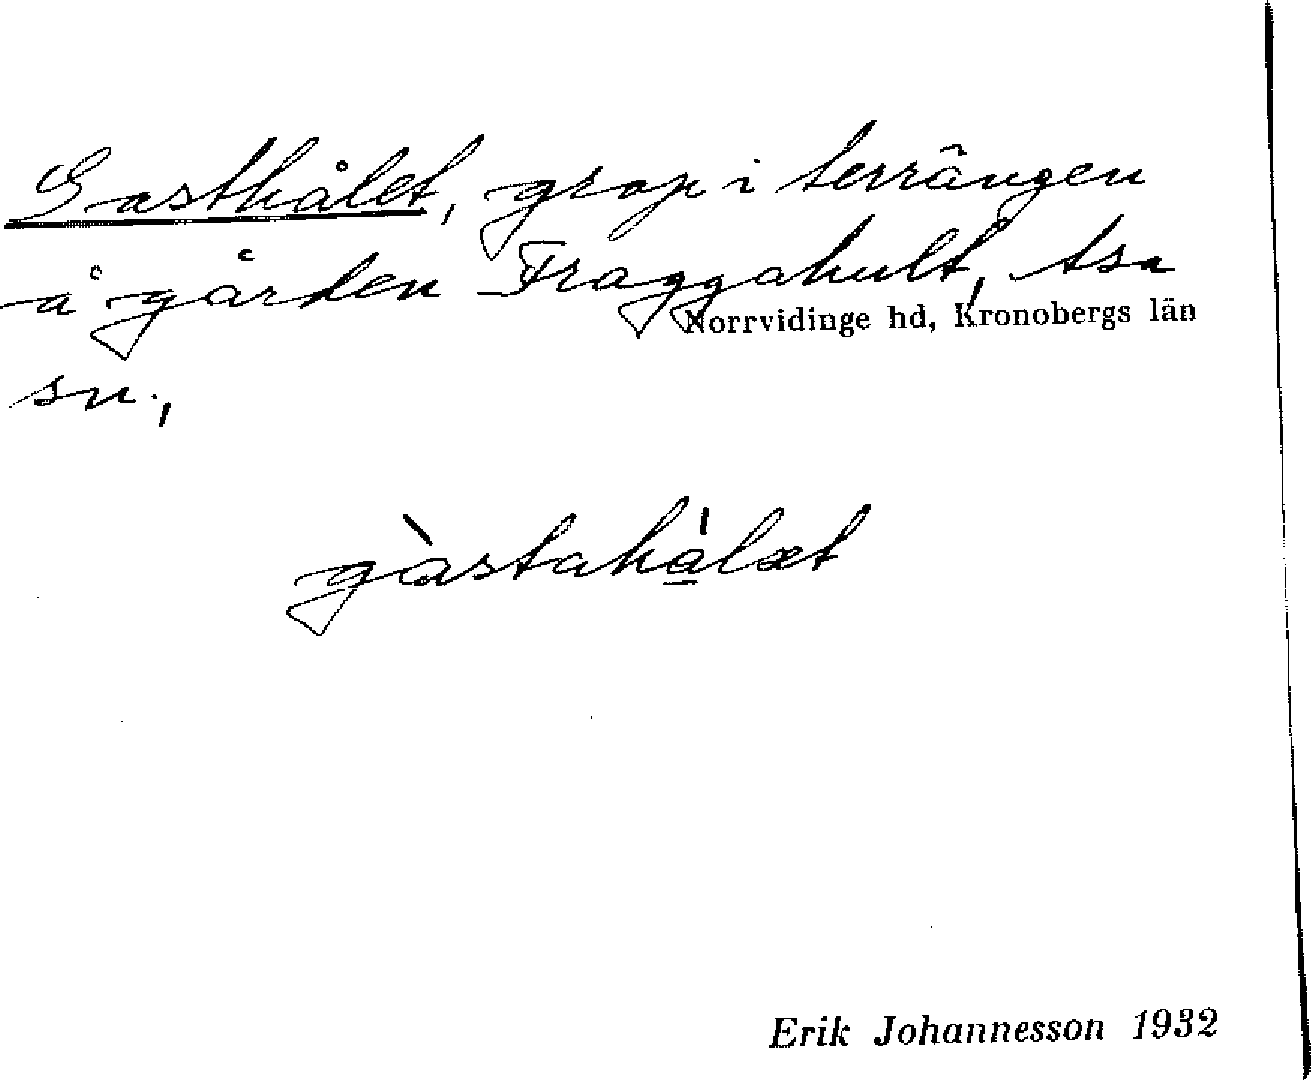 Gasthålet, grop i terrängen
å gården Fraggahult, tsa
Norrvidinge hd, Kronobergs län
sn.,
gàstahålæt
Erik Johannesson 1932